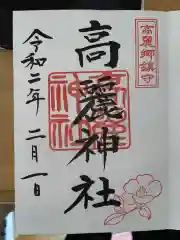 高麗郷鎮守
高麗神社
令和二年二月一日
高麗神社